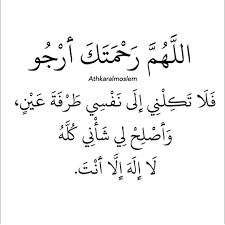 اللَّهُمَّ رَحْمَتَكَ أَرْجُو
Athkaralmoslem
فَلَا تَكِلْنِي إِلَى نَفْسِي طَرْفَةَ عَيْنٍ،
وَأَصْلِحْ لِي شَأْنِي كُلَّهُ
لَا إِلَهَ إِلَّا أَنْتَ.